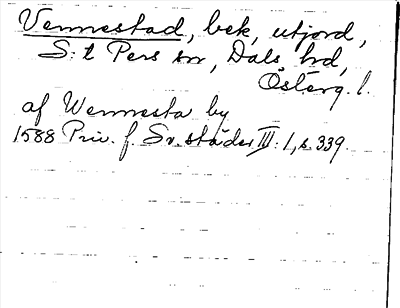 Vennestad, bek, utjord,
S:t Pers sn, Dals hd,
Österg. l.
af Wennesta by
1588 Priv. f. Sv. städer III:1, s. 339.